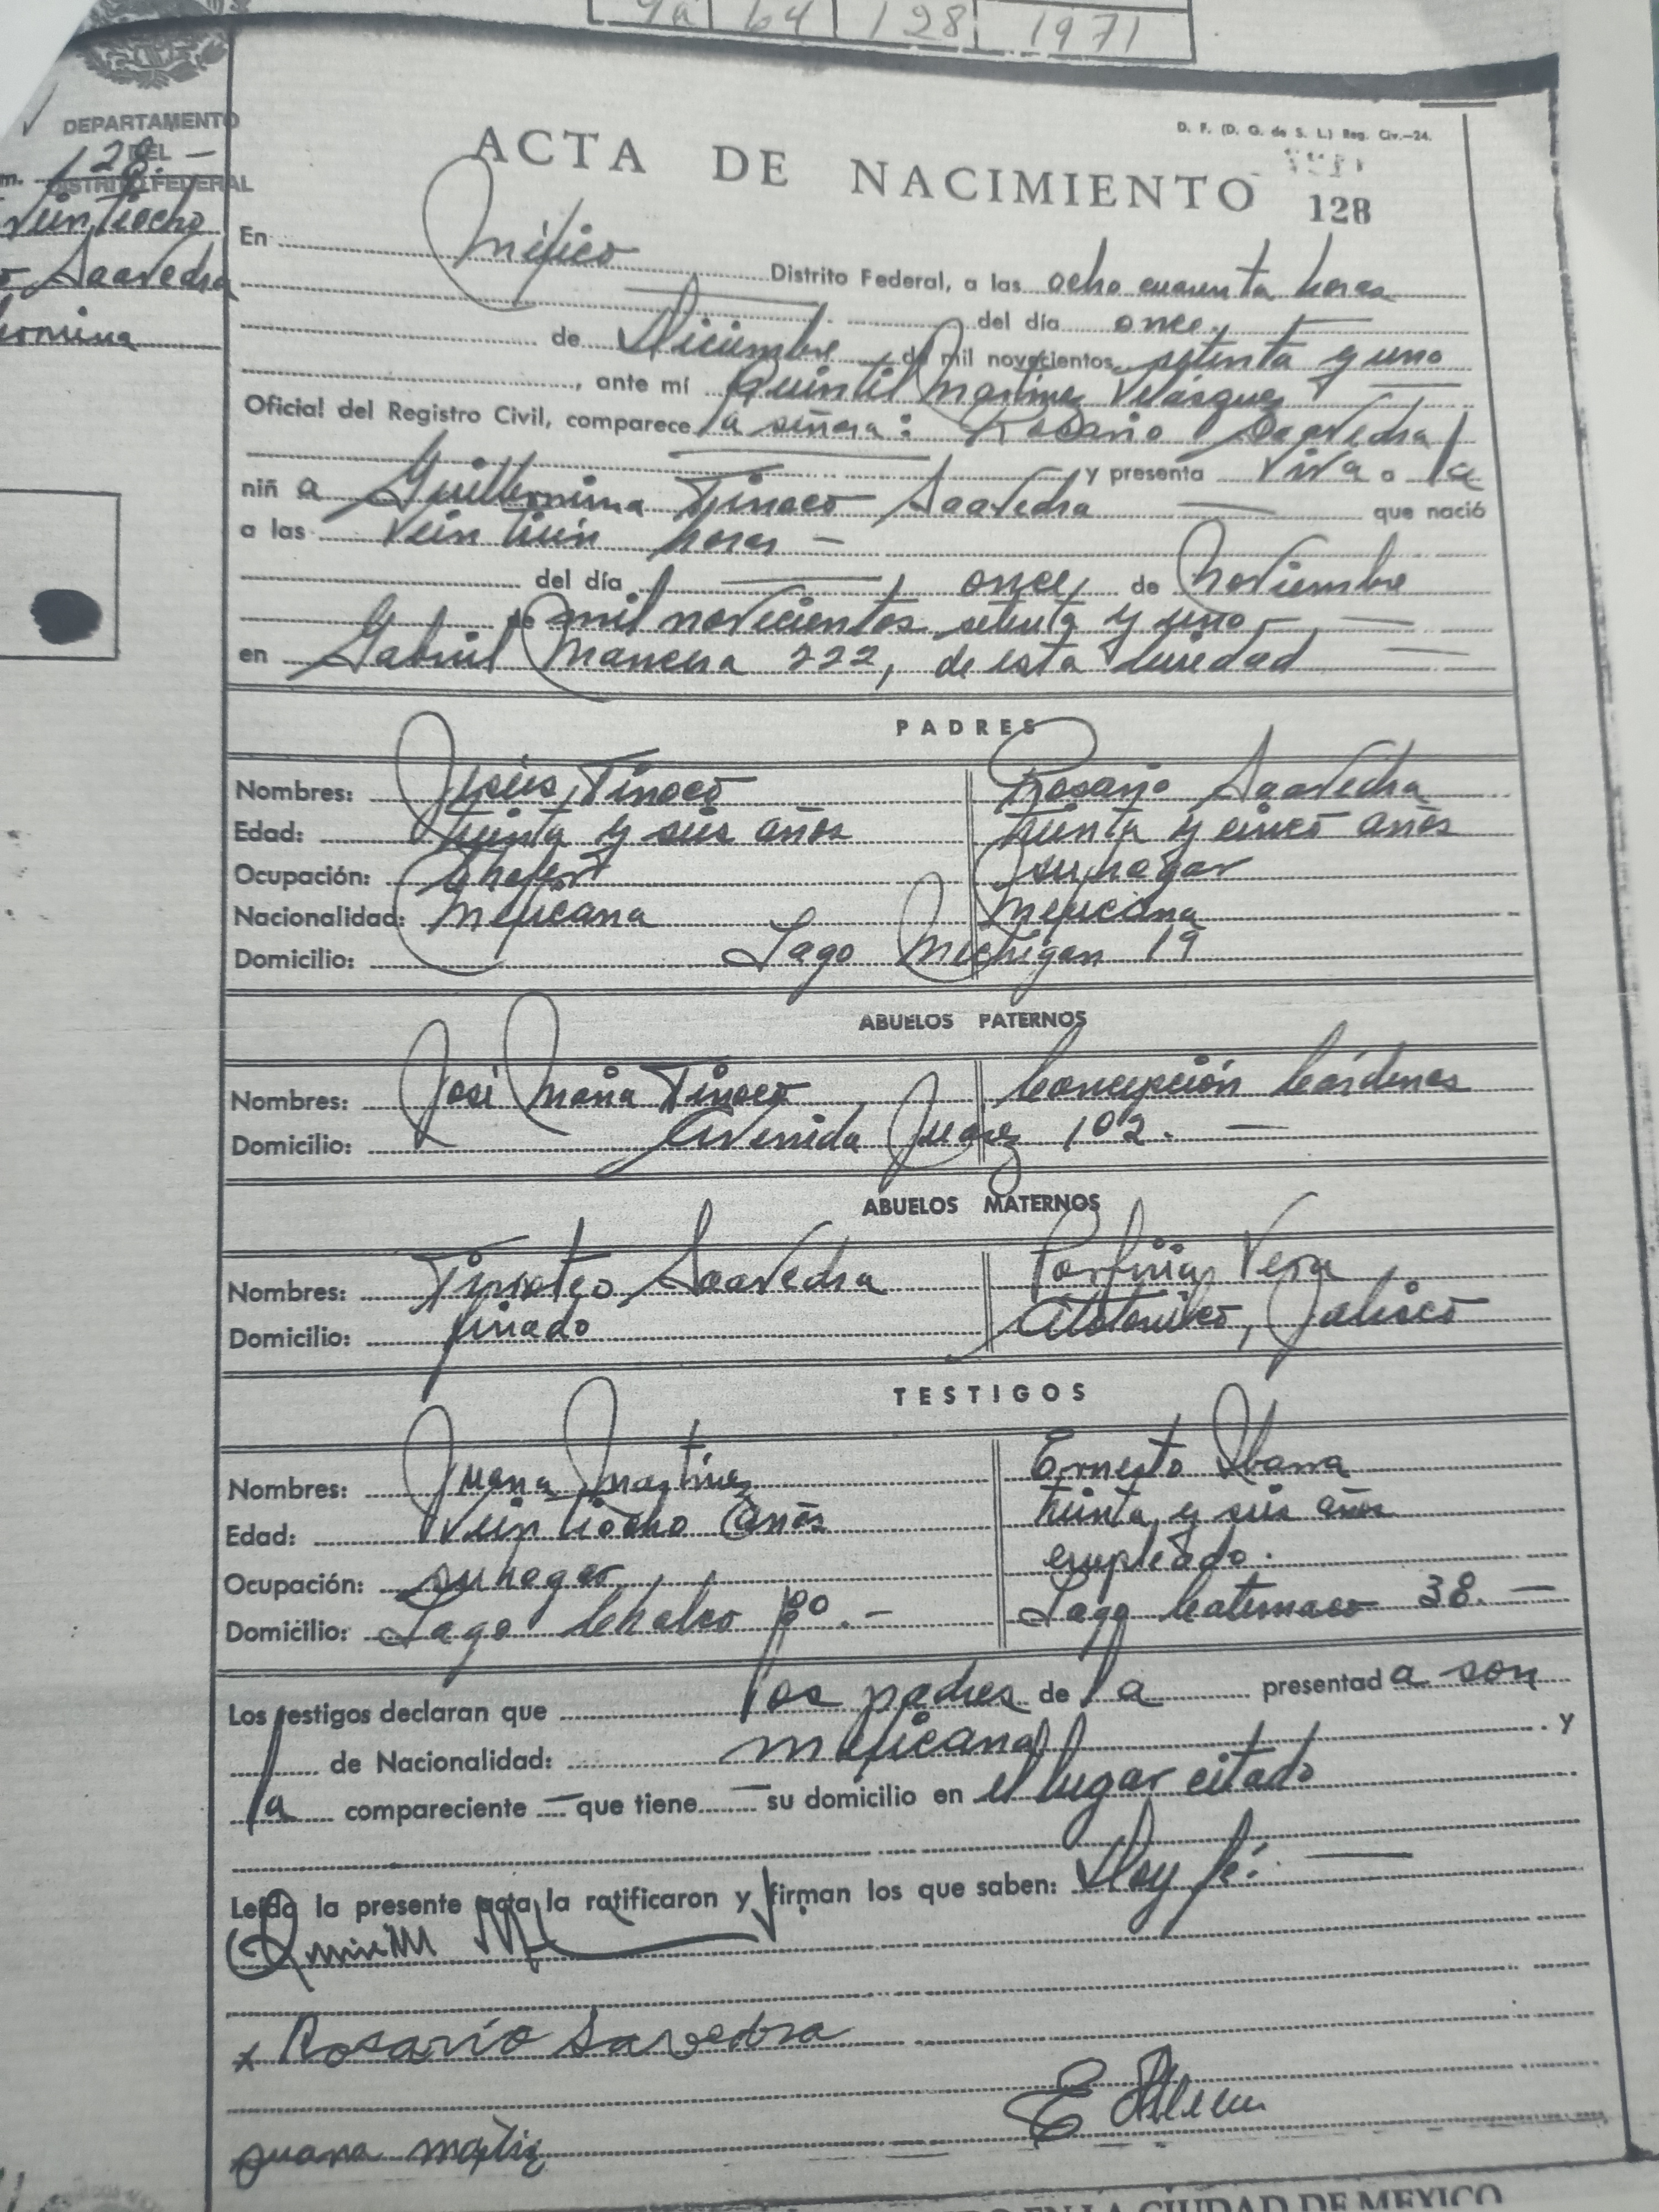 9a 64 128 1971
DEPARTAMENTO
DEL
DISTRITO FEDERAL
128 -
Veintiocho
Saavedra
D. F. (D. G. de S. L.) Reg. Civ.-24.
ACTA DE NACIMIENTO
128
En México Distrito Federal, a las ocho cuarenta horas
del día once,
de Diciembre de mil novecientos setenta y uno
, ante mí Quintil Martínez Velásquez
Oficial del Registro Civil, comparece la señora: Rosario Saavedra
y presenta viva a la
niñ a Guillermina Tinoco Saavedra que nació
a las veintiún horas -
del día once, de Noviembre
de mil novecientos setenta y uno -
en Gabriel Mancera 222, de esta Ciudad
PADRES
Nombres: Jesús Tinoco Rosario Saavedra
Edad: treinta y seis años treinta y cinco años
Ocupación: Chofer su hogar
Nacionalidad: Mexicana Mexicana
Domicilio: Lago Michigan 19
ABUELOS PATERNOS
Nombres: José María Tinoco Concepción Cárdenas
Domicilio: Avenida Juárez 102. -
ABUELOS MATERNOS
Nombres: Timoteo Saavedra Porfiria Vera
Domicilio: finado Atotonilco, Jalisco
TESTIGOS
Nombres: Juana Martínez Ernesto Ibarra
Edad: Veintiocho años treinta y seis años
Ocupación: su hogar empleado.
Domicilio: Lago Chalco Lago Catemaco 38. -
Los testigos declaran que los padres de la presentad a son
de Nacionalidad: mexicana . y
la compareciente - que tiene - su domicilio en el lugar citado
Leída la presente acta la ratificaron y firman los que saben: Doy fé. -
x Rosario Savedra
EN LA CIUDAD DE MEXICO